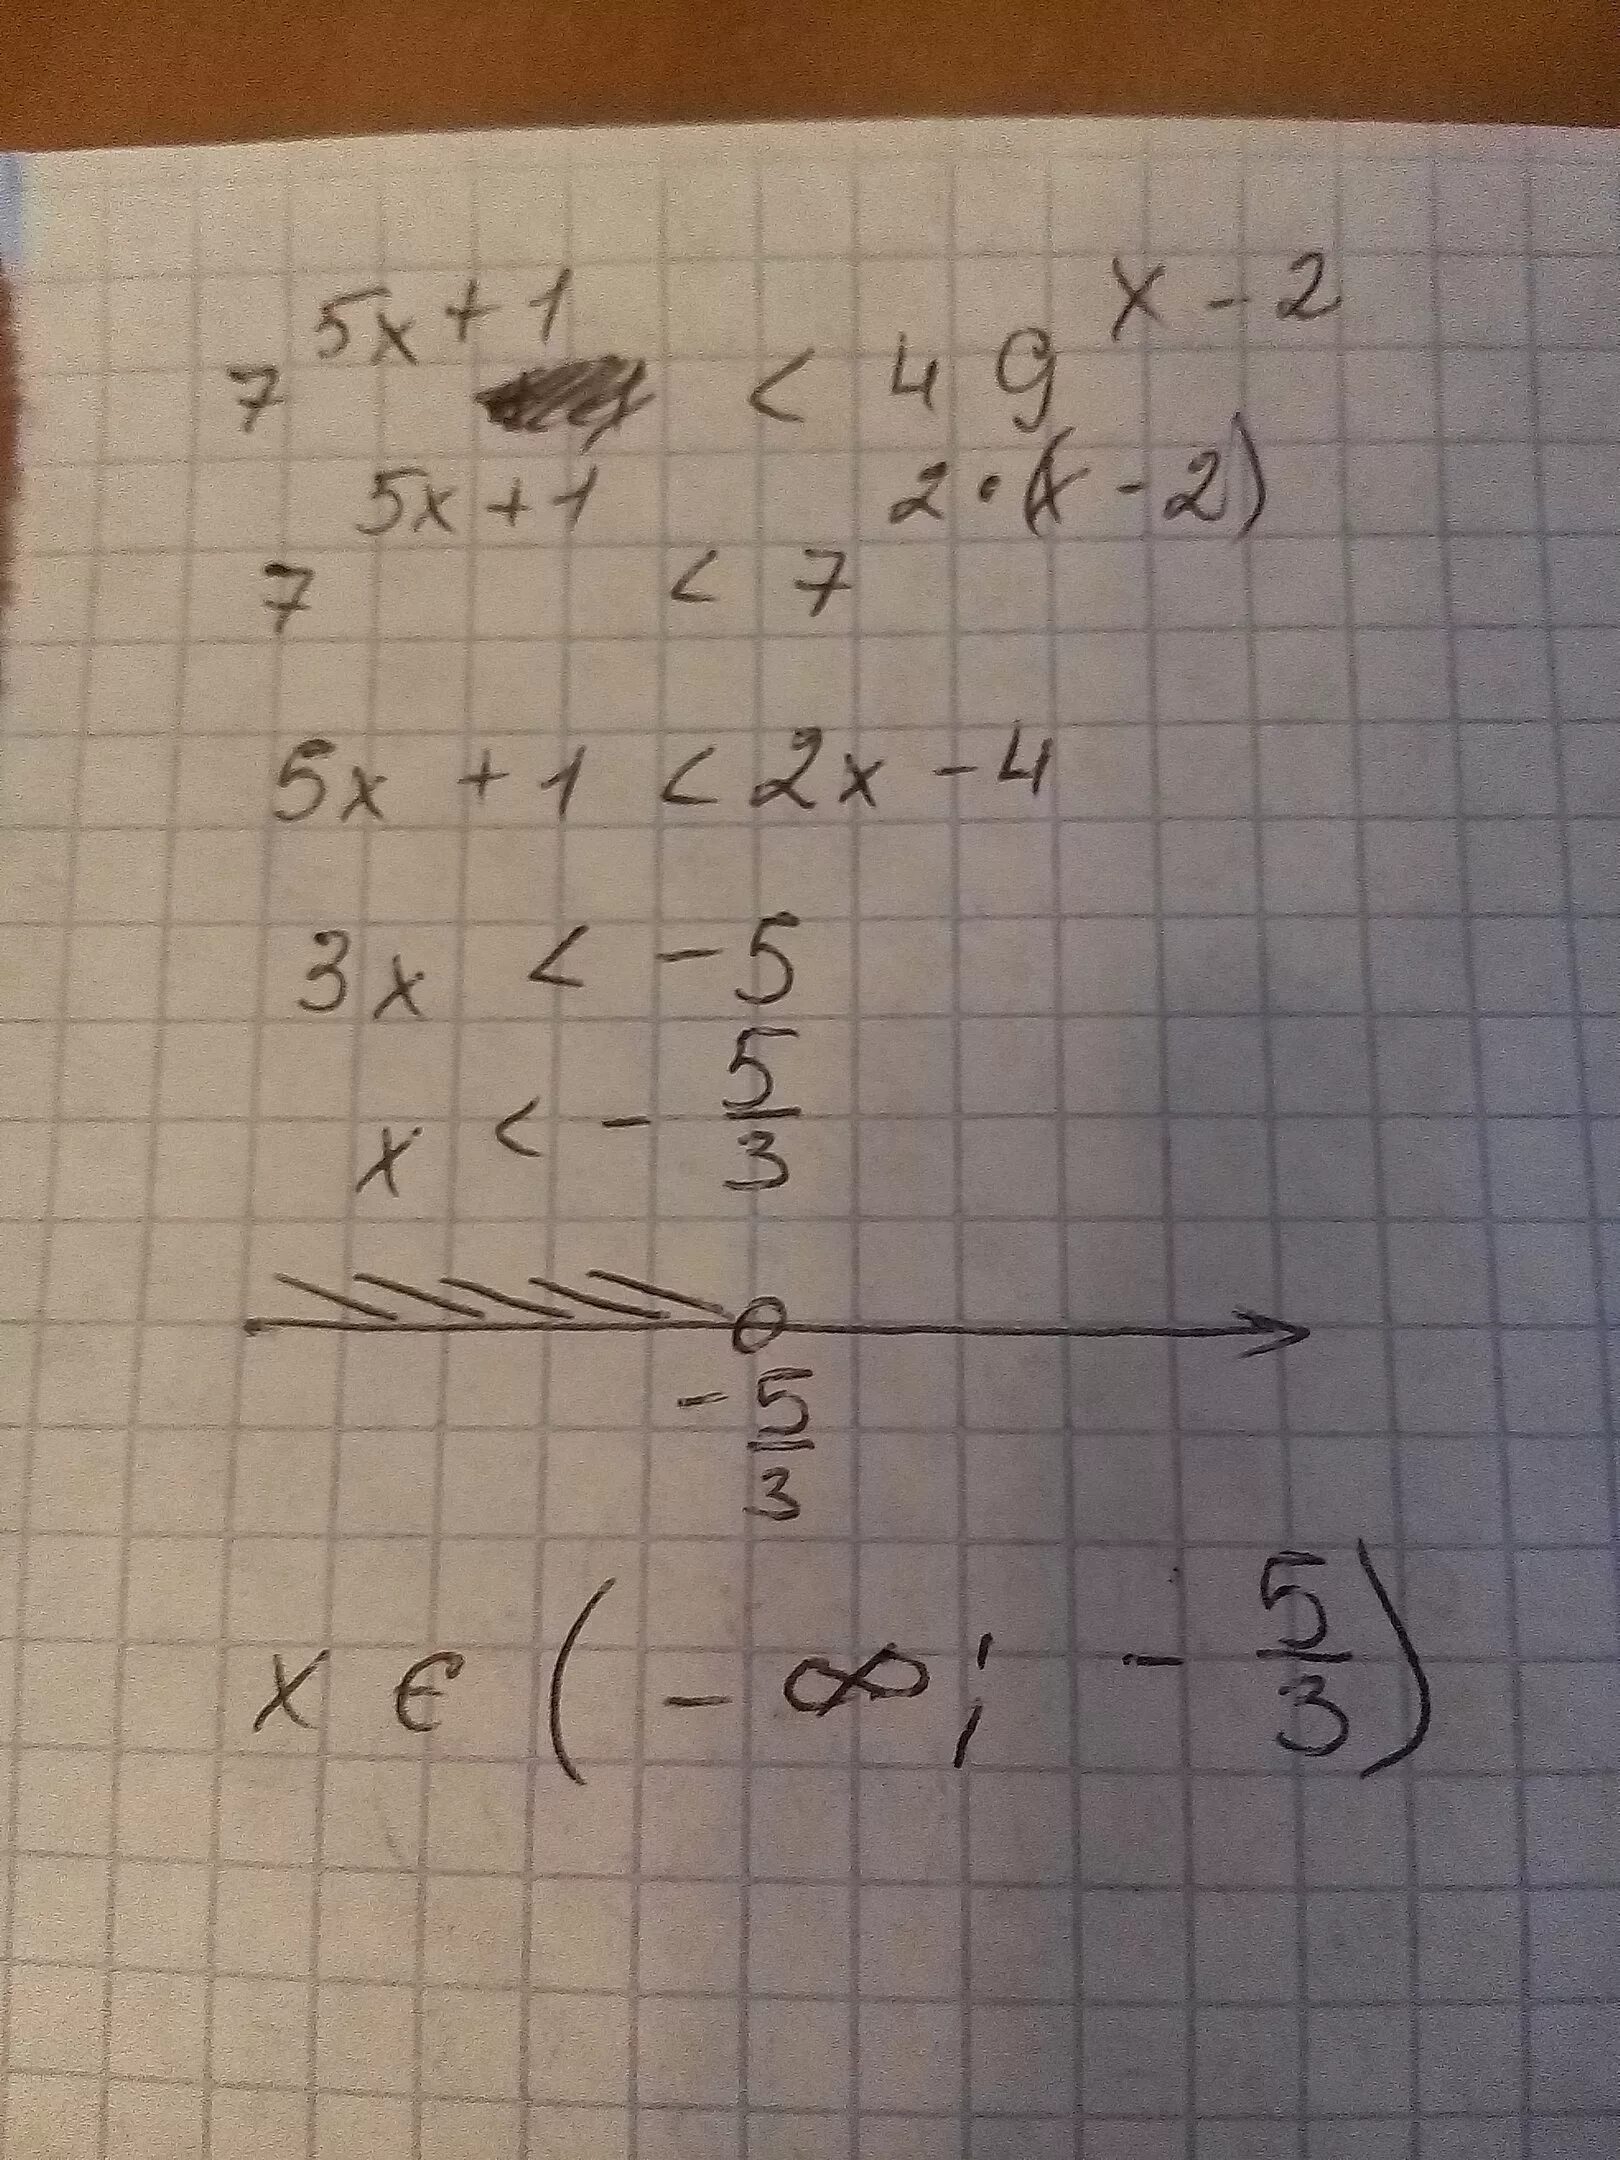 7^{5x+1} < 49^{x-2}
7^{5x+1} < 7^{2·(x-2)}
5x + 1 < 2x - 4
3x < -5
x < - 5/3
- 5/3
x ∈ ( - ∞ ; - 5/3 )